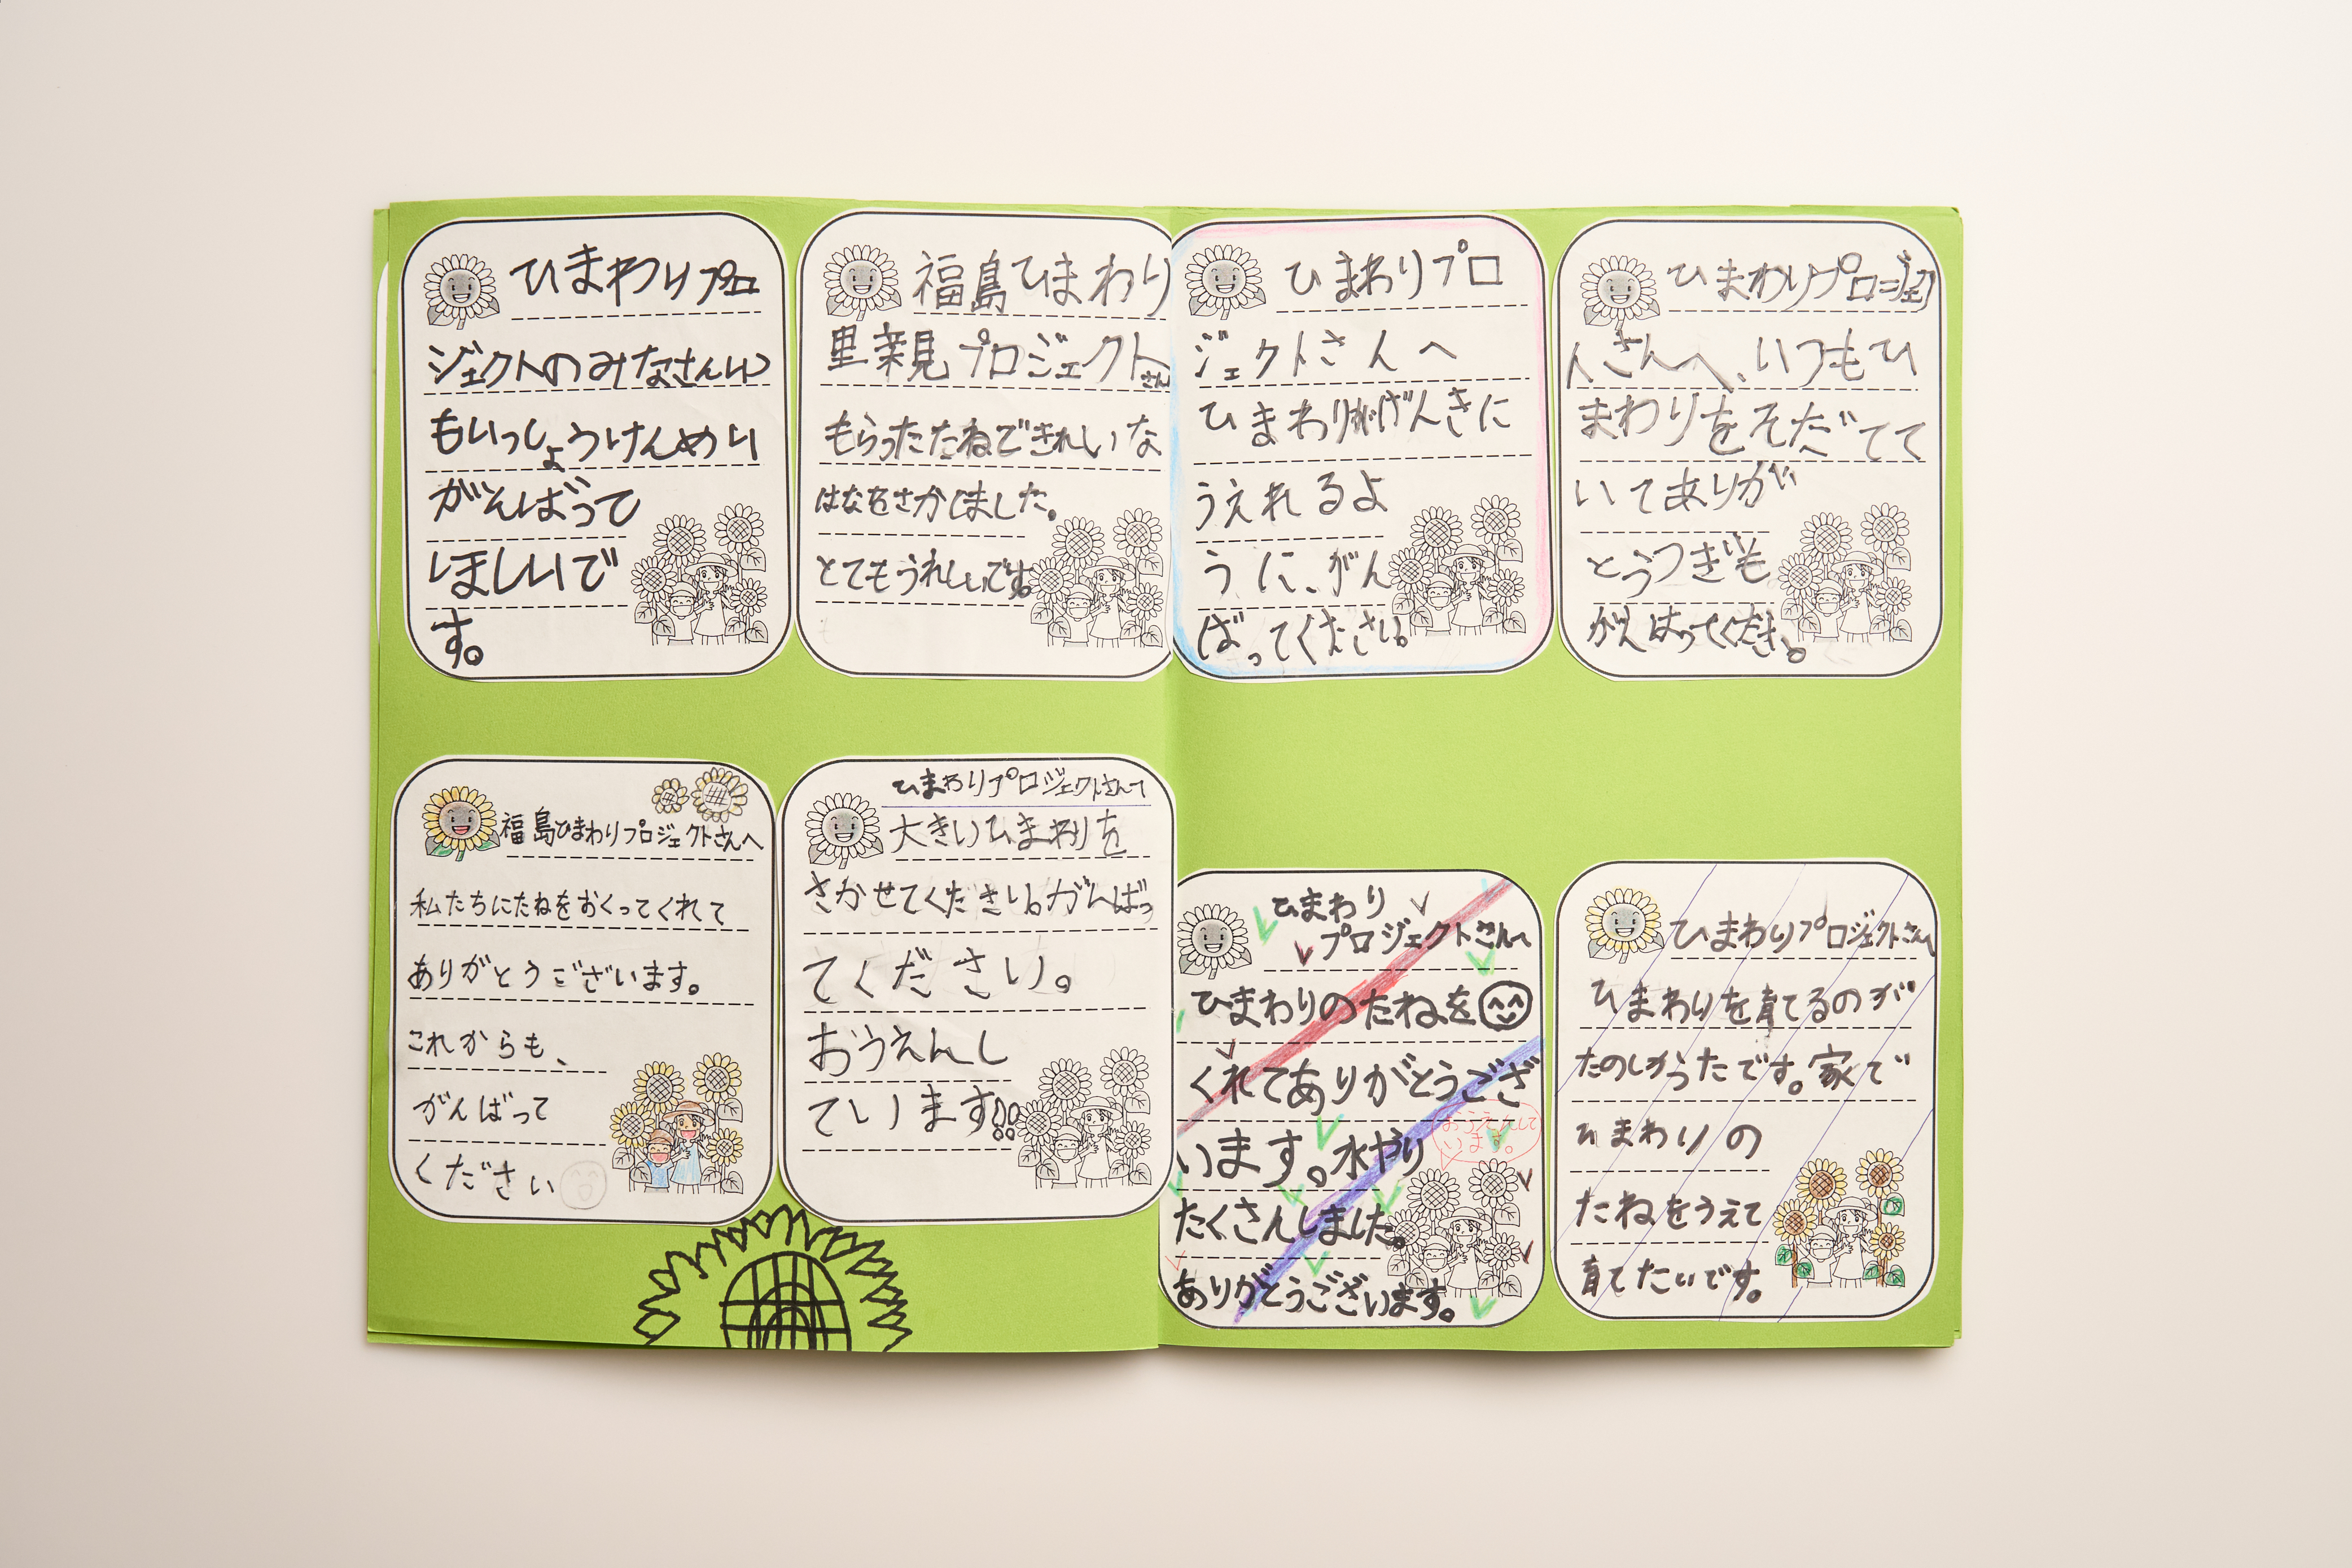 ひまわりプロ
ジェクトのみなさんいつ
もいっしょうけんめい
がんばって
ほしいで
す。
福島ひまわり
里親プロジェクトさん
もらったたねできれしいな
はなをさかしました。
とてもうれしいです。
ひまわりプロ
ジェクトさんへ
ひまわりがげんきに
うえれるよ
うに、がん
ばってください。
ひまわりプロジェク
トさんへ、いつもひ
まわりをそだてて
いてありが
とうつぎも
がんばってくだき。
福島ひまわりプロジェクトさんへ
私たちにたねをおくってくれて
ありがとうございます。
これからも、
がんばって
ください
ひまわりプロジェクトさんへ
大きいひまわりを
さかせてください。がんばっ
てください。
おうえんし
ています!!
ひまわり
プロジェクトさんへ
ひまわりのたねを
くれてありがとうござ
います。水やり
おうえんして
います。
たくさんしました。
ありがとうございます。
ひまわりプロジェクトさんへ
ひまわりを育てるのが
たのしかったです。家で
ひまわりの
たねをうえて
育てたいです。